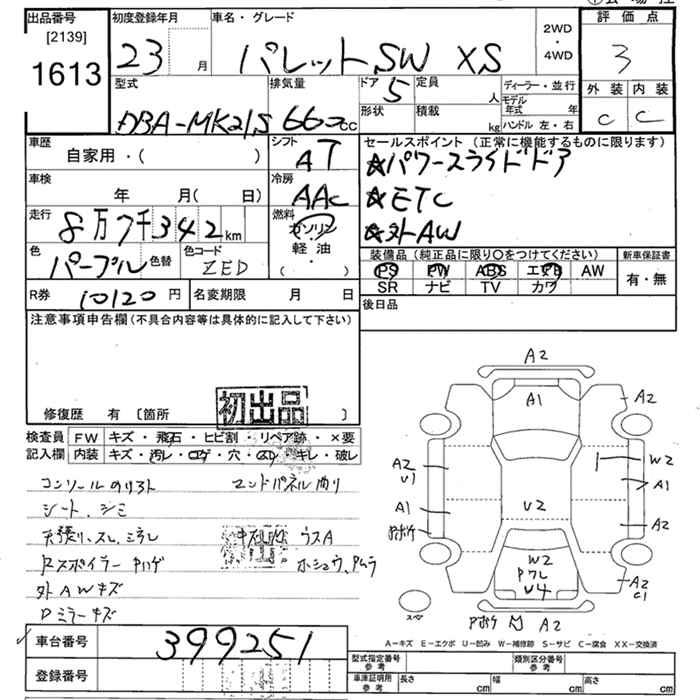 出品番号 初度登録年月 車名・グレード 2WD・4WD 評価点
[2139]
1613 23 月 パレットSW XS 3
型式 排気量 ドア 5 定員 人 ディーラー・並行 外装 内装
DBA-MK21S 660 cc 形状 積載 kg モデル年式 年 ハンドル 左・右 C C
車歴 シフト セールスポイント (正常に機能するものに限ります)
自家用・( ) AT ☆パワースライドドア
車検 冷房 ☆ETC
年 月(日) AAC ☆外AW
走行 8万7千342km 燃料 ガソリン 軽油・( )
色 パープル 色替 色コード ZED
装備品 (純正品に限り○をつけてください) 新車保証書
PS PW ABS エアB AW 有・無
SR ナビ TV カワ
R券 10120円 名変期限 月 日 後日品
注意事項申告欄(不具合内容等は具体的に記入して下さい)
初出品
修復歴 有 [箇所 ]
検査員 FW キズ・飛石・ヒビ割・リペア跡・×要
記入欄 内装 キズ・汚レ・コゲ・穴・スレ・キレ・破レ
コンソール エンドパネル曲り
シート、シミ
天張リ、スレ、ミラレ キズ、凹 ウスA
Rスポイラー キハゲ ホシュウ、タムラ
外AWキズ
Dミラーキズ
A2
A1
A2
A2
U1
W2
A1
A1
U2
A2
W2
U4
A2
C1
A2
車台番号 399251
登録番号
A-キズ E-エクボ U-凹み W-補修跡 S-サビ C-腐食 XX-交換済
型式指定番号 参考 類別区分番号 参考
車庫証明用 参考 長さ cm 幅 cm 高さ cm